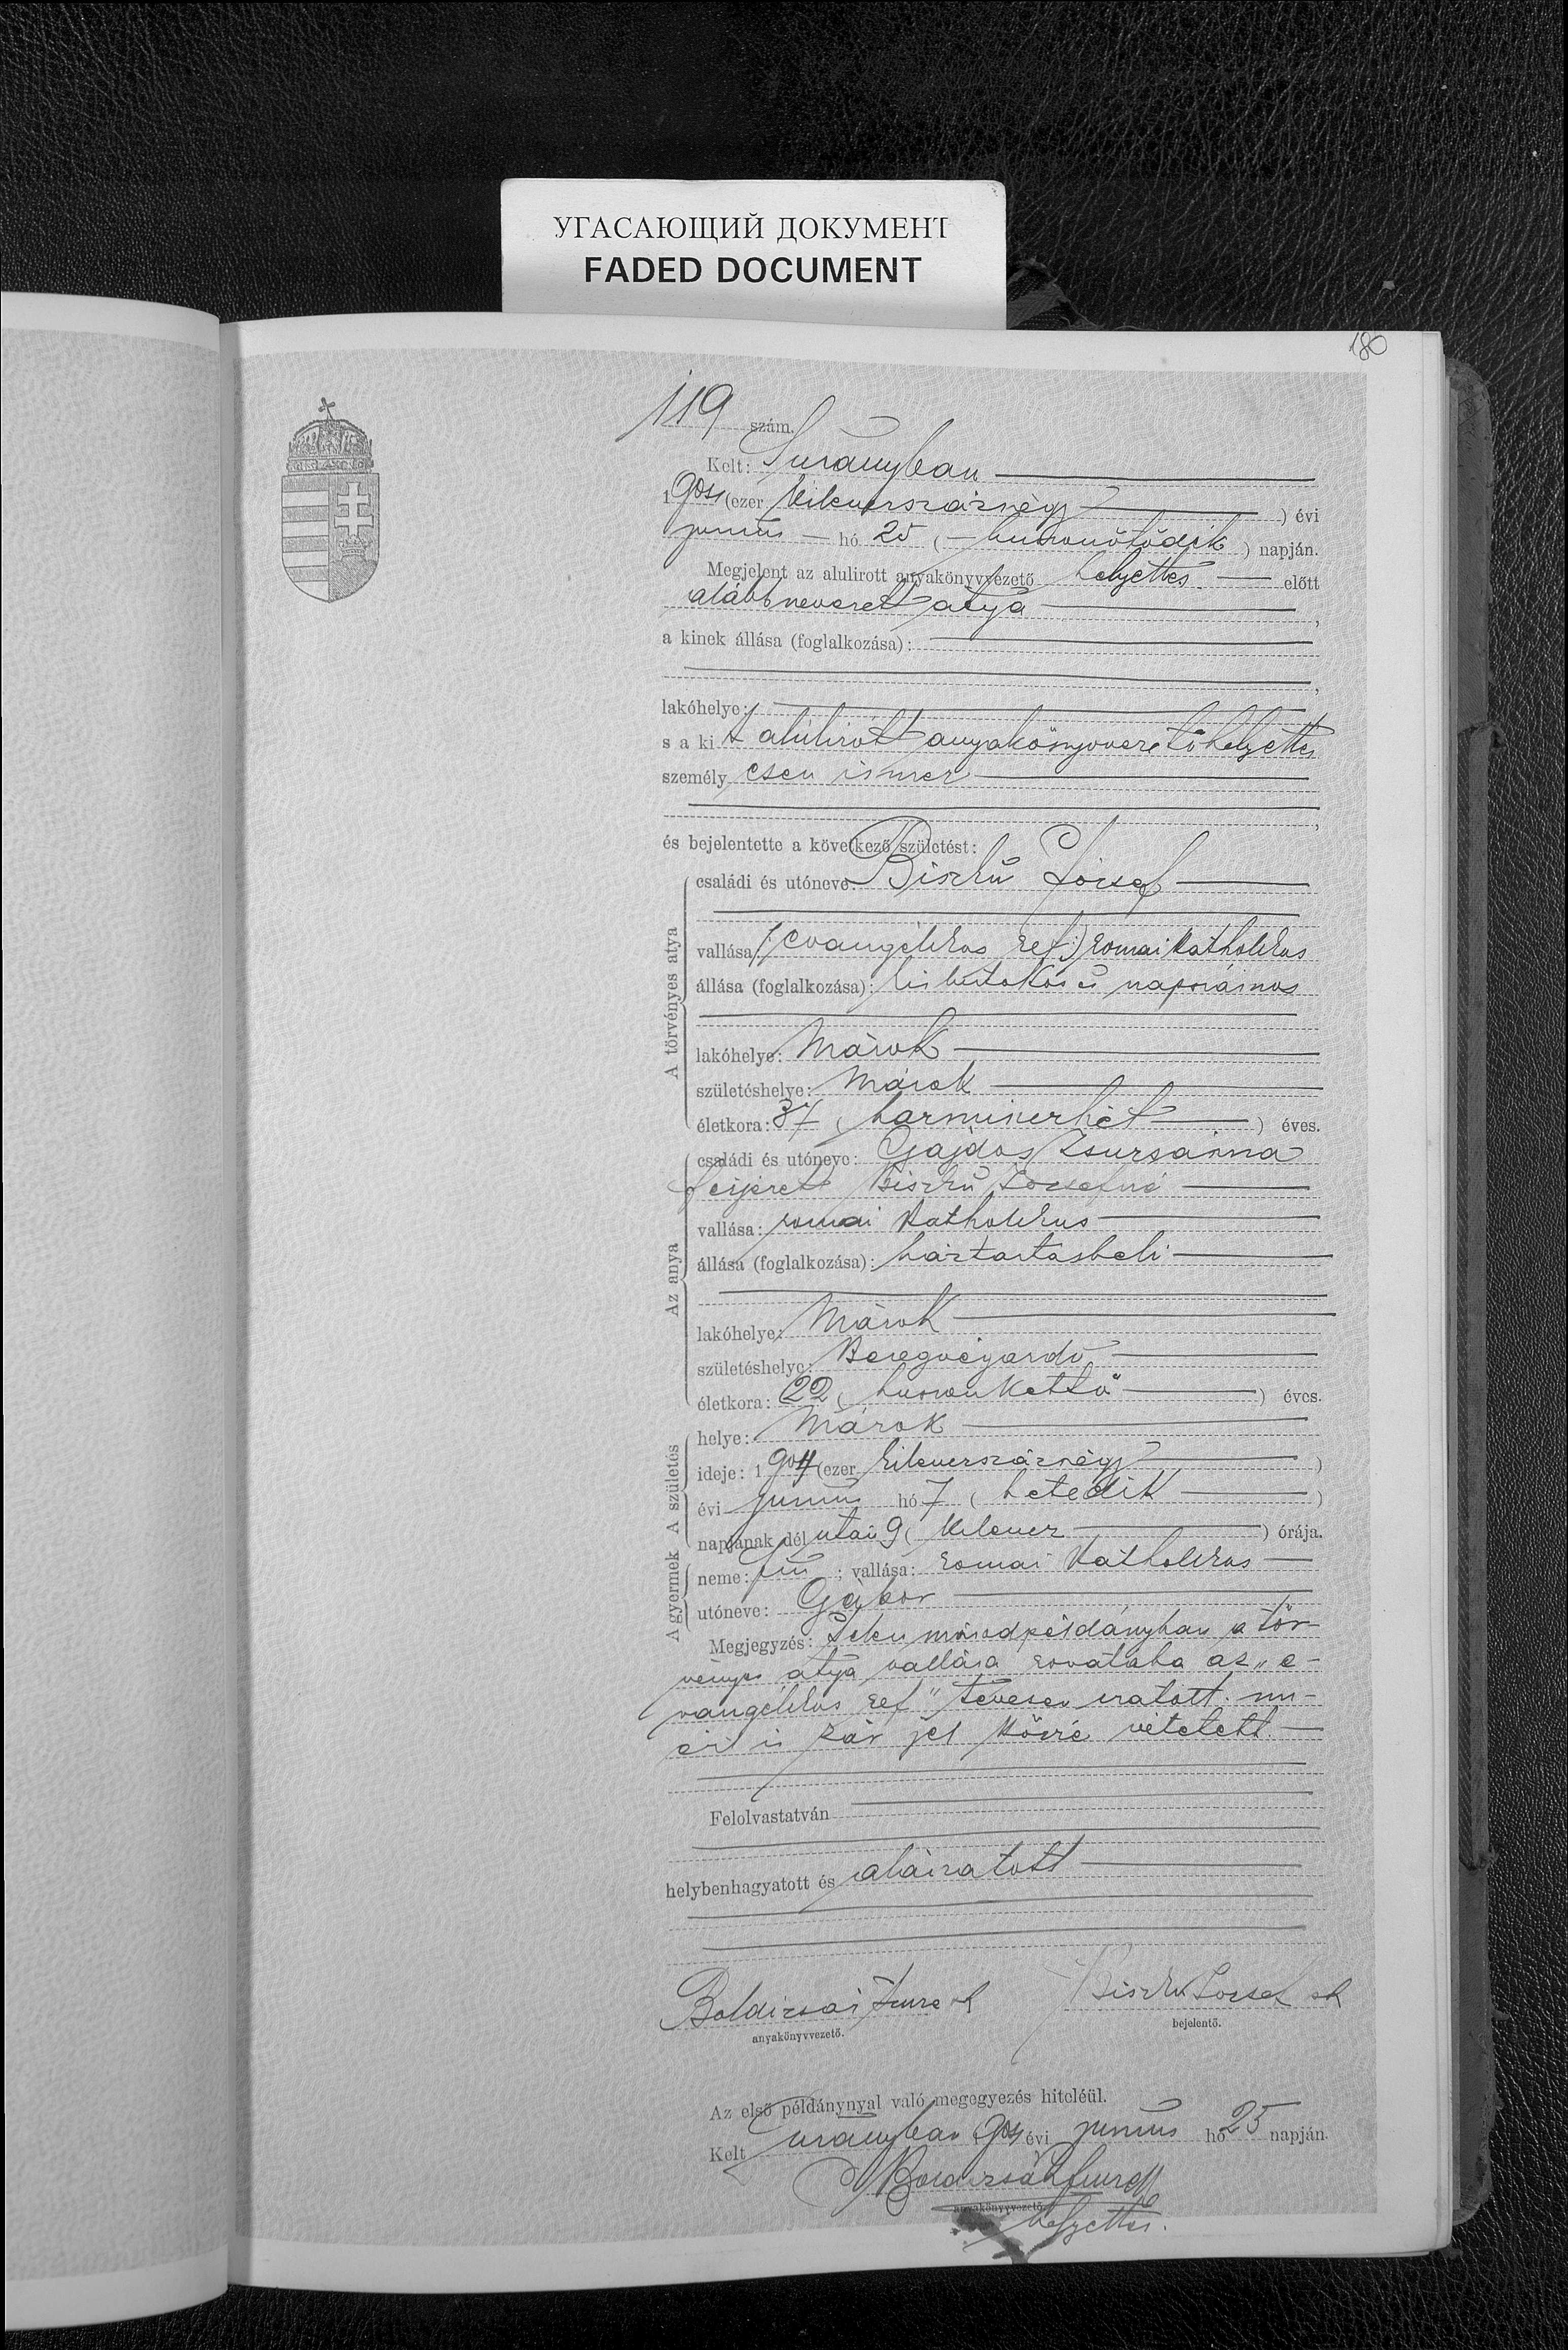 УГАСАЮЩИЙ ДОКУМЕНТ
FADED DOCUMENT
180
119 szám.
Kelt: Surányban
1904 (ezer kilenczszáznégy) évi
junius hó 25 (huszonötödik) napján.
Megjelent az alulirott anyakönyvvezető helyettes előtt
alább nevezett atya,
a kinek állása (foglalkozása):
,
lakóhelye:
s a kit alulirott anyakönyvvezető helyettes
személyesen ismer
,
és bejelentette a következő születést:
A törvényes atya
családi és utóneve: Biszkú József
vallása: (evangélikus ref:) romai katholikus
állása (foglalkozása): kis birtokos és napszámos
lakóhelye: Márok
születéshelye: Márok
életkora: 37 (harminczhét) éves.
Az anya
családi és utóneve: Gajdos Zsuzsánna
férjezett Biszkú Józsefné
vallása: romai katholikus
állása (foglalkozása): háztartásbeli
lakóhelye: Márok
születéshelye: Beregvégardó
életkora: 22 (huszonkettő) éves.
A születés
helye: Márok
ideje: 1904 (ezer kilenczszáznégy)
évi junius hó 7 (hetedik)
napjának dél utáni 9 (kilencz) órája.
A gyermek
neme: fiú; vallása: romai katholikus
utóneve: Gábor
Megjegyzés: Jelen másodpéldányban a tör-
vényes atya vallása rovatába az „e-
vangélikus ref" tévesen iratott mi-
ért is zár jel közzé vétetett.
Felolvastatván
helybenhagyatott és aláiratott
Boldizsár Imre sk
Biszkú József sk
anyakönyvvezető.
bejelentő.
Az első példánynyal való megegyezés hiteléül.
Kelt Surányban 1904 évi junius hó 25 napján.
Boldizsár Imre
anyakönyvvezető
helyettes.